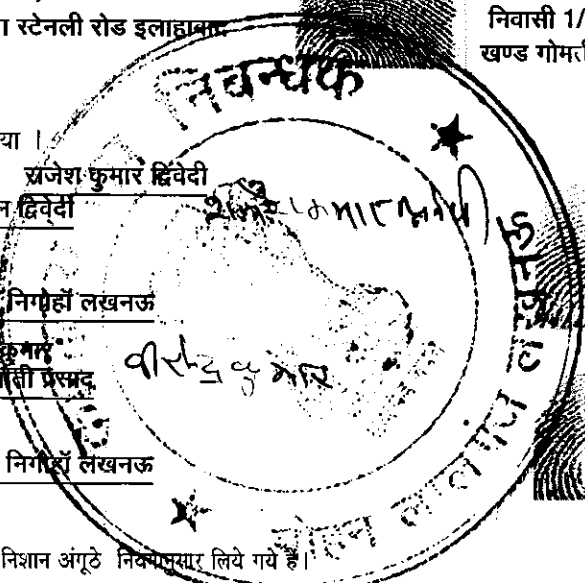 ा स्टेनली रोड इलाहाबाद
निवासी 1/
खण्ड गोमती
निबन्धक
या ।
राजेश कुमार द्विवेदी
न द्विवेदी
निगोहाँ लखनऊ
कुमार
प्रसाद
वीरेन्द्र कुमार
निगोहाँ लखनऊ
मोहन लालगंज लखनऊ
निशान अंगूठे नियमानुसार लिये गये हैं।